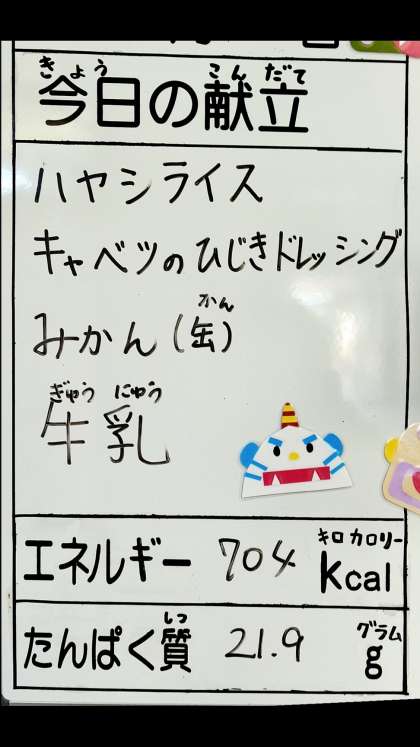 きょう こんだて
今日の献立
ハヤシライス
キャベツのひじきドレッシング
かん
みかん(缶)
ぎゅう にゅう
牛乳
キロカロリー
エネルギー 704 Kcal
しつ グラム
たんぱく質 21.9 g